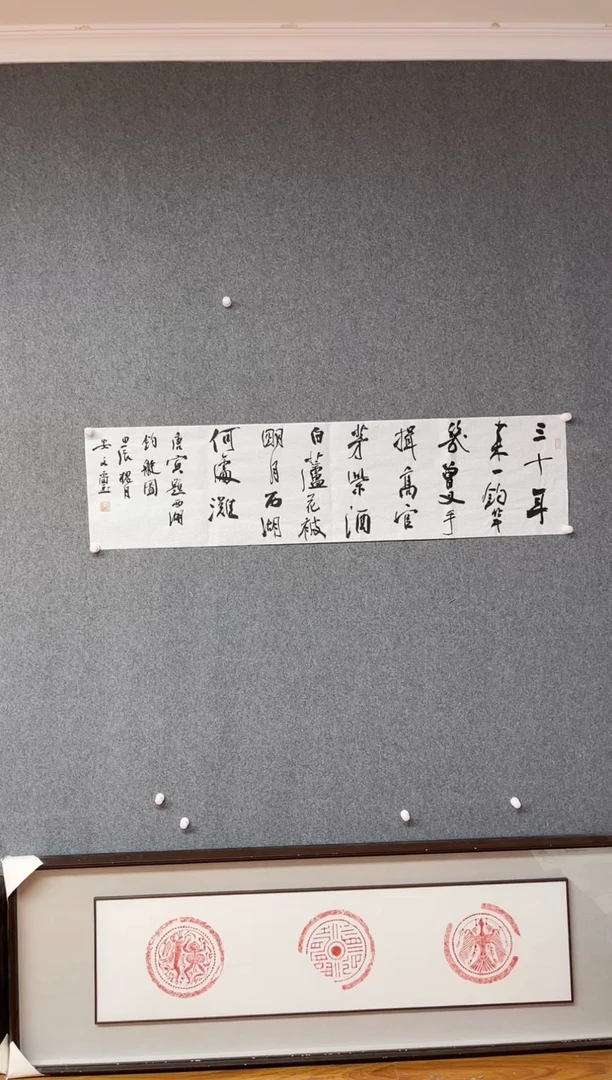 三十年
来一釣竿
幾曾叉手
揖高官
茅柴酒
白蘆花被
明月石湖
何處灘
唐寅題西湖
釣艇圖
甲辰月
安文